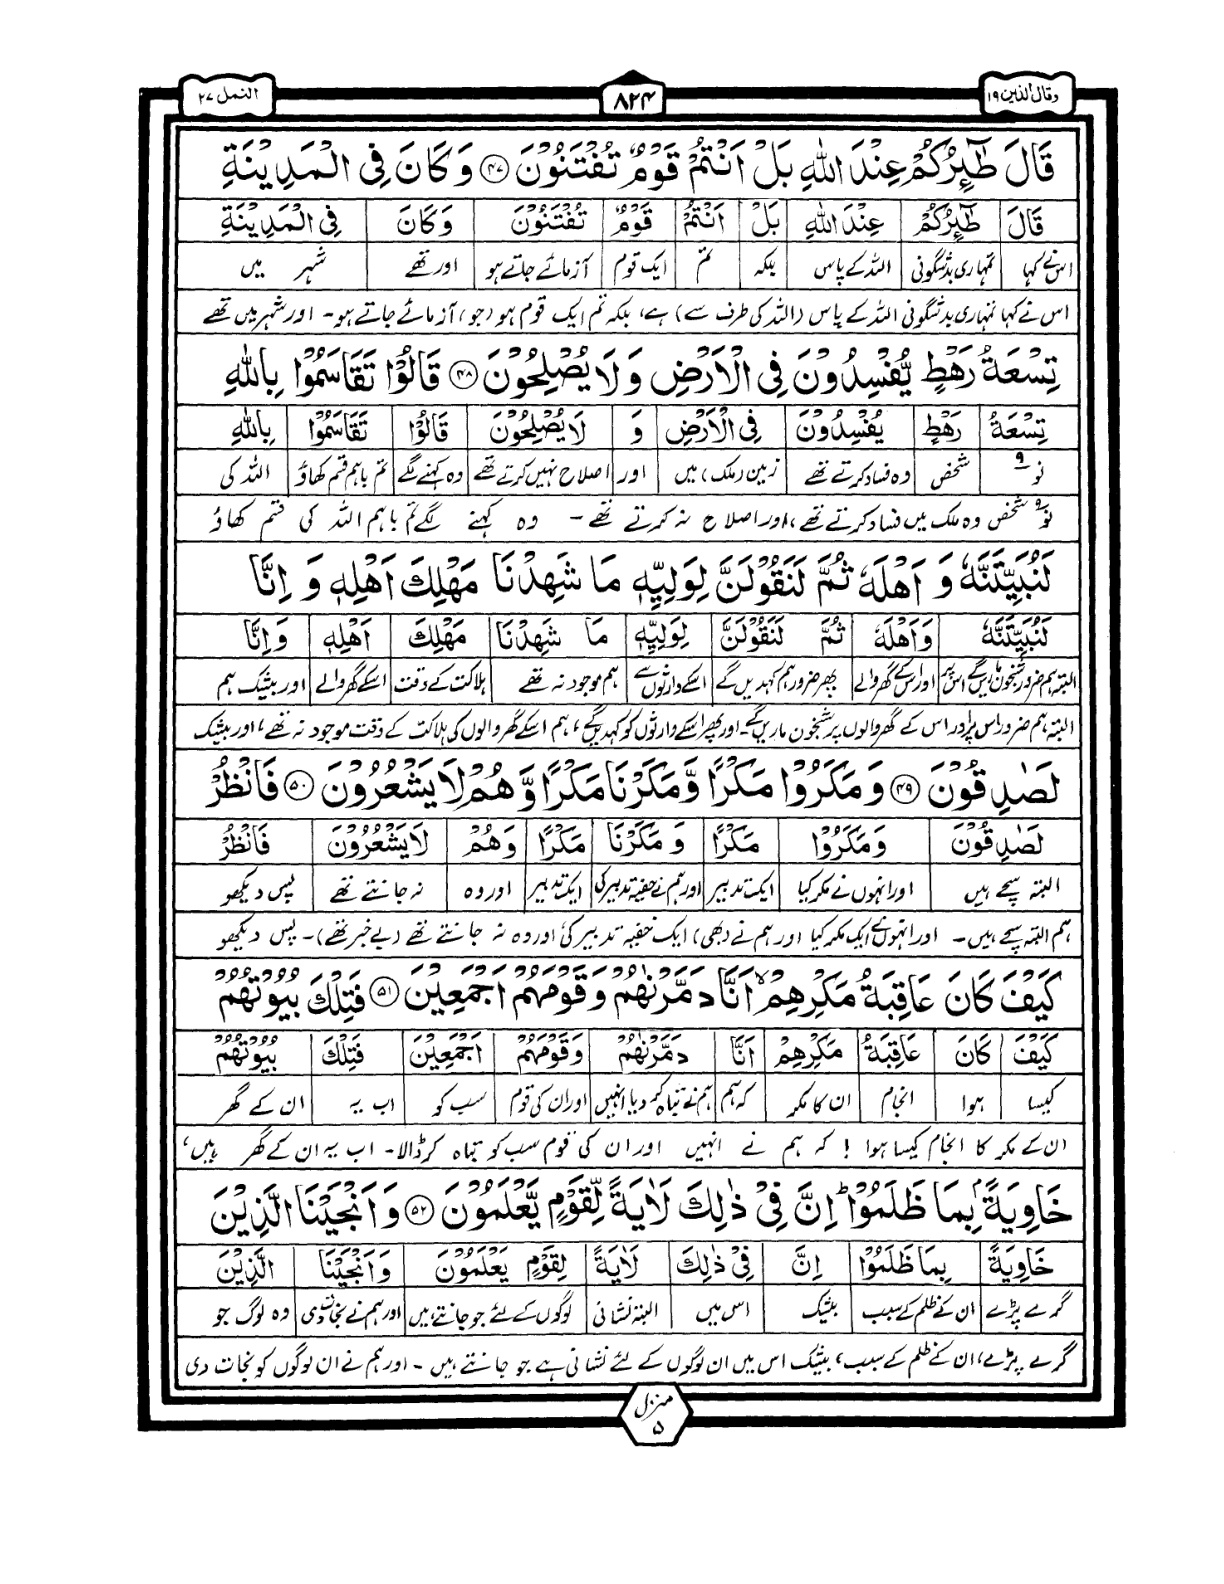 وقال الذین ۱۹
۸۲۴
النمل ۲۷
قَالَ طٰٓئِرُكُمْ عِنْدَ اللّٰهِ بَلْ اَنْتُمْ قَوْمٌ تُفْتَنُوْنَ ۴۷ وَ كَانَ فِی الْمَدِیْنَةِ
قَالَ طٰٓئِرُكُمْ عِنْدَ اللّٰهِ بَلْ اَنْتُمْ قَوْمٌ تُفْتَنُوْنَ وَ كَانَ فِی الْمَدِیْنَةِ
اس نے کہا تمہاری بدشگونی اللہ کے پاس بلکہ تم ایک قوم آزمائے جاتے ہو اور تھے شہر میں
اس نے کہا تمہاری بدشگونی اللہ کے پاس (اللہ کی طرف سے) ہے، بلکہ تم ایک قوم ہو (جو) آزمائے جاتے ہو۔ اور شہر میں تھے
تِسْعَةُ رَهْطٍ یُّفْسِدُوْنَ فِی الْاَرْضِ وَ لَا یُصْلِحُوْنَ ۴۸ قَالُوْا تَقَاسَمُوْا بِاللّٰهِ
تِسْعَةُ رَهْطٍ یُفْسِدُوْنَ فِی الْاَرْضِ وَ لَا یُصْلِحُوْنَ قَالُوْا تَقَاسَمُوْا بِاللّٰهِ
نو ۹ شخص وہ فساد کرتے تھے زمین (ملک) میں اور اصلاح نہیں کرتے تھے وہ کہنے لگے تم باہم قسم کھاؤ اللہ کی
نو ۹ شخص وہ ملک میں فساد کرتے تھے، اور اصلاح نہ کرتے تھے ۔ وہ کہنے لگے تم باہم اللہ کی قسم کھاؤ
لَنُبَیِّتَنَّهٗ وَ اَهْلَهٗ ثُمَّ لَنَقُوْلَنَّ لِوَلِیِّهٖ مَا شَهِدْنَا مَهْلِكَ اَهْلِهٖ وَ اِنَّا
لَنُبَیِّتَنَّهٗ وَ اَهْلَهٗ ثُمَّ لَنَقُوْلَنَّ لِوَلِیِّهٖ مَا شَهِدْنَا مَهْلِكَ اَهْلِهٖ وَ اِنَّا
البتہ ہم ضرور شبخون ماریں گے اس پر اور اس کے گھر والے پھر ضرور ہم کہدیں گے اسکے وارثوں سے ہم موجود نہ تھے ہلاکت کے وقت اسکے گھر والے اور بیشک ہم
البتہ ہم ضرور اس پر اور اس کے گھر والوں پر شبخون ماریں گے۔ اور پھر اسکے وارثوں کو کہدیں گے، ہم اسکے گھر والوں کی ہلاکت کے وقت موجود نہ تھے، اور بیشک
لَصٰدِقُوْنَ ۴۹ وَ مَكَرُوْا مَكْرًا وَّ مَكَرْنَا مَكْرًا وَّ هُمْ لَا یَشْعُرُوْنَ ۵۰ فَانْظُرْ
لَصٰدِقُوْنَ وَ مَكَرُوْا مَكْرًا وَ مَكَرْنَا مَكْرًا وَ هُمْ لَا یَشْعُرُوْنَ فَانْظُرْ
البتہ سچے ہیں اور انہوں نے مکر کیا ایک تدبیر اور ہم نے خفیہ تدبیر کی ایک تدبیر اور وہ نہ جانتے تھے پس دیکھو
ہم البتہ سچے ہیں۔ اور انہوں نے ایک مکر کیا اور ہم نے (بھی) ایک خفیہ تدبیر کی اور وہ نہ جانتے تھے (بے خبر تھے)۔ پس دیکھو
كَیْفَ كَانَ عَاقِبَةُ مَكْرِهِمْ ۙ اَنَّا دَمَّرْنٰهُمْ وَ قَوْمَهُمْ اَجْمَعِیْنَ ۵۱ فَتِلْكَ بُیُوْتُهُمْ
كَیْفَ كَانَ عَاقِبَةُ مَكْرِهِمْ اَنَّا دَمَّرْنٰهُمْ وَ قَوْمَهُمْ اَجْمَعِیْنَ فَتِلْكَ بُیُوْتُهُمْ
کیسا ہوا انجام ان کا مکر کہ ہم ہم نے تباہ کر دیا انہیں اور ان کی قوم سب کو اب یہ ان کے گھر
ان کے مکر کا انجام کیسا ہوا ! کہ ہم نے انہیں اور ان کی قوم سب کو تباہ کر ڈالا۔ اب یہ ان کے گھر ہیں،
خَاوِیَةًۢ بِمَا ظَلَمُوْا ؕ اِنَّ فِیْ ذٰلِكَ لَاٰیَةً لِّقَوْمٍ یَّعْلَمُوْنَ ۵۲ وَ اَنْجَیْنَا الَّذِیْنَ
خَاوِیَةً بِمَا ظَلَمُوْا اِنَّ فِیْ ذٰلِكَ لَاٰیَةً لِقَوْمٍ یَعْلَمُوْنَ وَ اَنْجَیْنَا الَّذِیْنَ
گرے پڑے ان کے ظلم کے سبب بیشک اس میں البتہ نشانی لوگوں کے لئے جو جانتے ہیں اور ہم نے نجات دی وہ لوگ جو
گرے پڑے، ان کے ظلم کے سبب، بیشک اس میں ان لوگوں کے لئے نشانی ہے جو جانتے ہیں ۔ اور ہم نے ان لوگوں کو نجات دی
منزل
۵